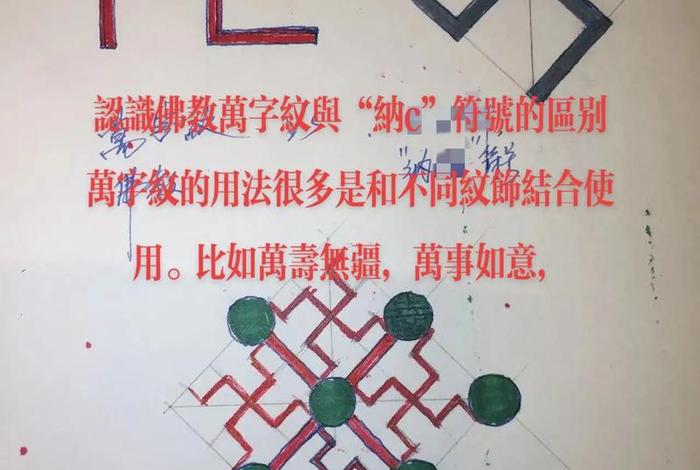 認識佛教萬字紋與“納c”符號的區别
萬字紋的用法很多是和不同紋飾結合使
用。比如萬壽無疆，萬事如意，